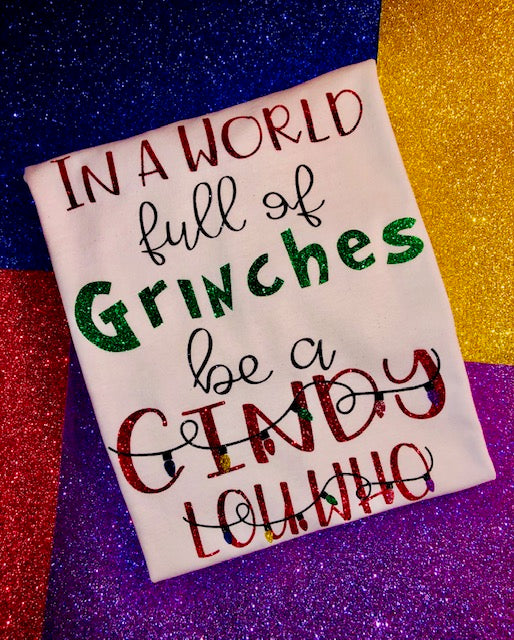 IN A WORLD
full of
GrINches
be a
CINDY
LOU WHO